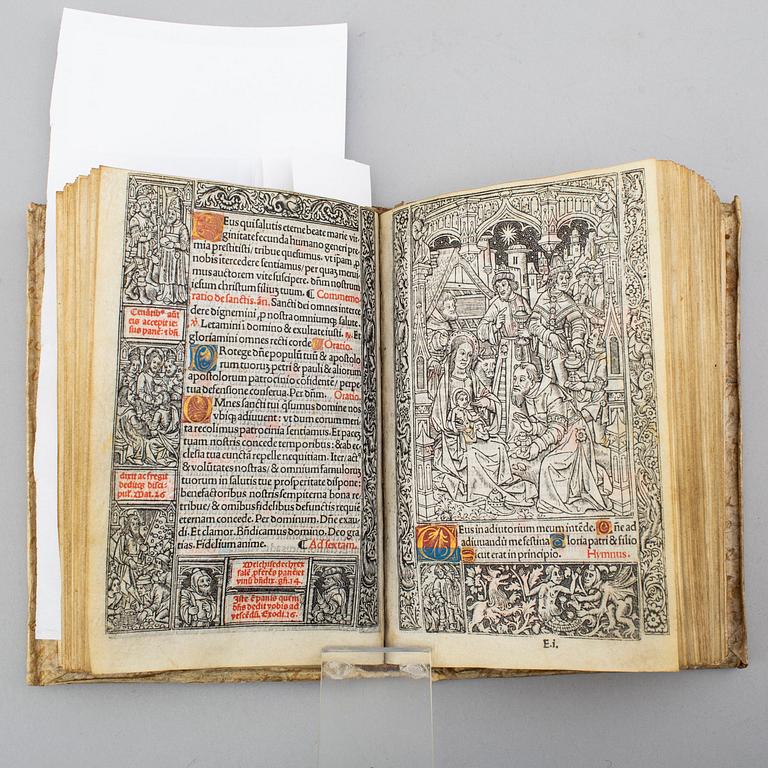 Eus qui salutis eterne beate marie vir
ginitate fecunda humano generi pre
mia prestitisti/ tribue quesumus. vt ipam p̱
nobis intercedere sentiamus/ per quaz merui
mus auctorem vite suscipere. dn̄m nostrum
iesum christum filiuz tuum. ¶ Commemo
ratio de sanctis. an̄. Sancti dei omnes interce
dere dignemini, p nostra omniumqz salute.
℣. Letamini domino & exultate iusti. ℟. Et
gloriamini omnes recti corde Oratio.
Rotege dn̄e populuū tuū & apostolo
rum tuoruz petri & pauli & aliorum
apostolorum patrocinio cōfidente/ perpe
tua defensione conserua. Per dn̄m. Oratio.
Mnes sancti tui q̄sumus domine nos
vbiqz adiuuent: vt dum eorum meri
ta recolimus patrocinia sentiamus. Et pacez
tuam nostris concede temporibus: & ab ec
clesia tua cuncta repelle nequitiam. Iter/ act'
& volūtates nostras/ & omnium famuloruz
tuorum in salutis tue prosperitate dispone:
benefactoribus nostris sempiterna bona re
tribue/ & omnibus fidelibus defunctis requiē
eternam concede. Per dominum. Dn̄e exau
di. Et clamor. Bn̄dicamus domino. Deo gra
tias. Fidelium anime. ¶ Ad sextam.
Cenātibꝰ aūt
eis accepit ie
sus panē: & bn̄.
dixit ac fregit
deditqz disci-
pul'. Mat. 26
Melchisedech rex
salē, p̱ferēs panē et
vinū bn̄dix. gn̄. 14.
Iste ē panis quem
dn̄s dedit vobis ad
vescēdū. Exodi. 16.
Eus in adiutorium meum intēde. Dn̄e ad
adiuuandū me festina Gloria patri & filio
Sicut erat in principio. Hymnus.
E.i.